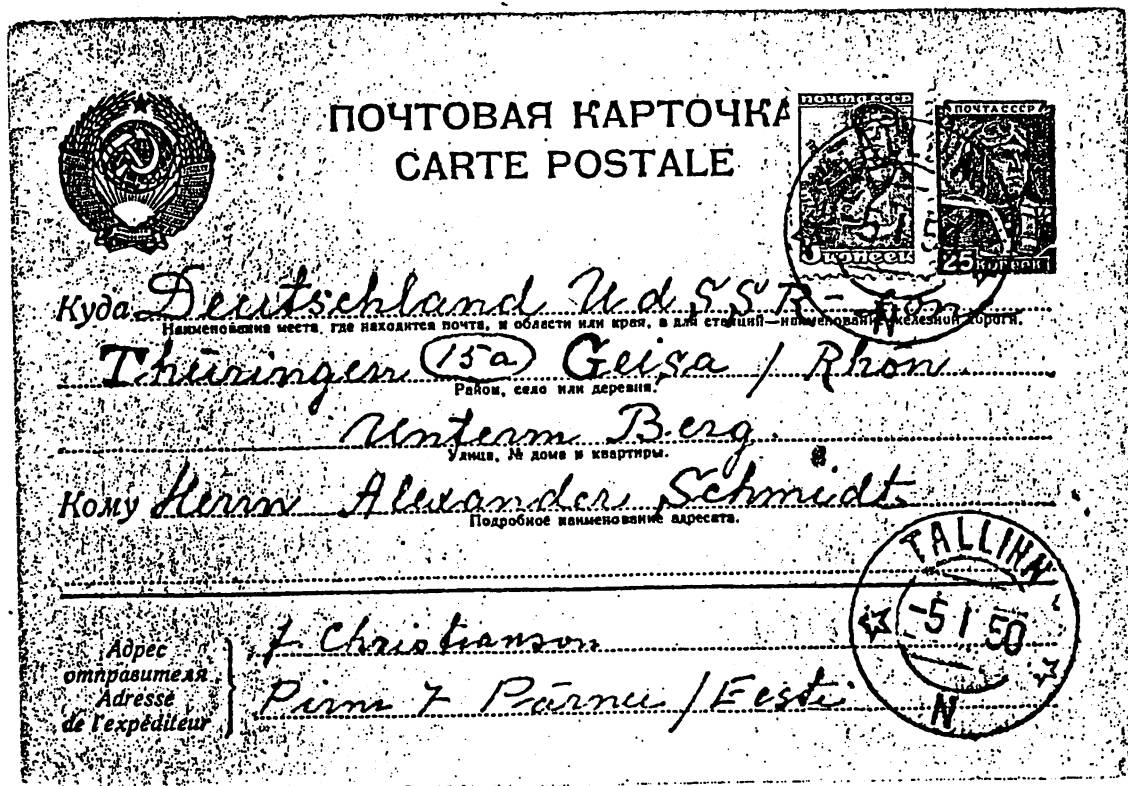 ПОЧТОВАЯ КАРТОЧКА
CARTE POSTALE
ПОЧТА СССР
ПОЧТА СССР
КОПЕЕК
25 КОПЕЕК
Куда Deutschland UdSSR-Zone
Наименование места, где находится почта, и области или края, а для станций—наименование железной дороги.
Thüringen 15a Geisa / Rhön
Район, село или деревня.
Unterm Berg.
Улица, № дома и квартиры.
Кому Herrn Alexander Schmidt
Подробное наименование адресата.
TALLINN
-5 1 50
N
Адрес
отправителя
Adresse
de l'expéditeur
J. Christianson
Pirni 7 Pärnu / Eesti